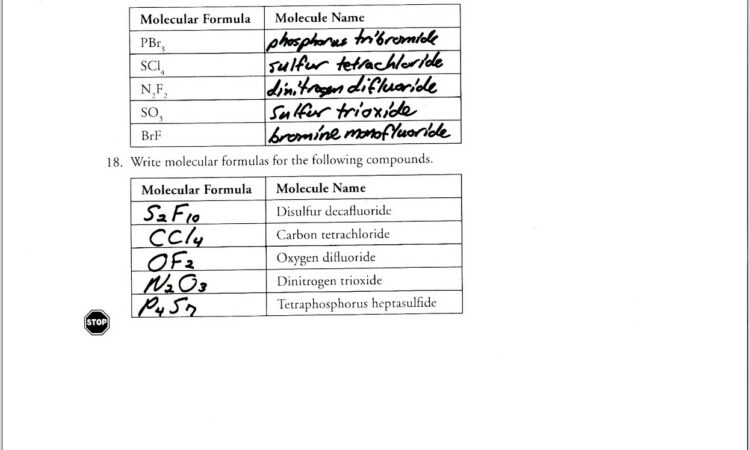 Molecular Formula Molecule Name
PBr₃ phosphorus tribromide
SCl₄ sulfur tetrachloride
N₂F₂ dinitrogen difluoride
SO₃ sulfur trioxide
BrF bromine monofluoride
18. Write molecular formulas for the following compounds.
Molecular Formula Molecule Name
S₂F₁₀ Disulfur decafluoride
CCl₄ Carbon tetrachloride
OF₂ Oxygen difluoride
N₂O₃ Dinitrogen trioxide
P₄S₇ Tetraphosphorus heptasulfide
STOP